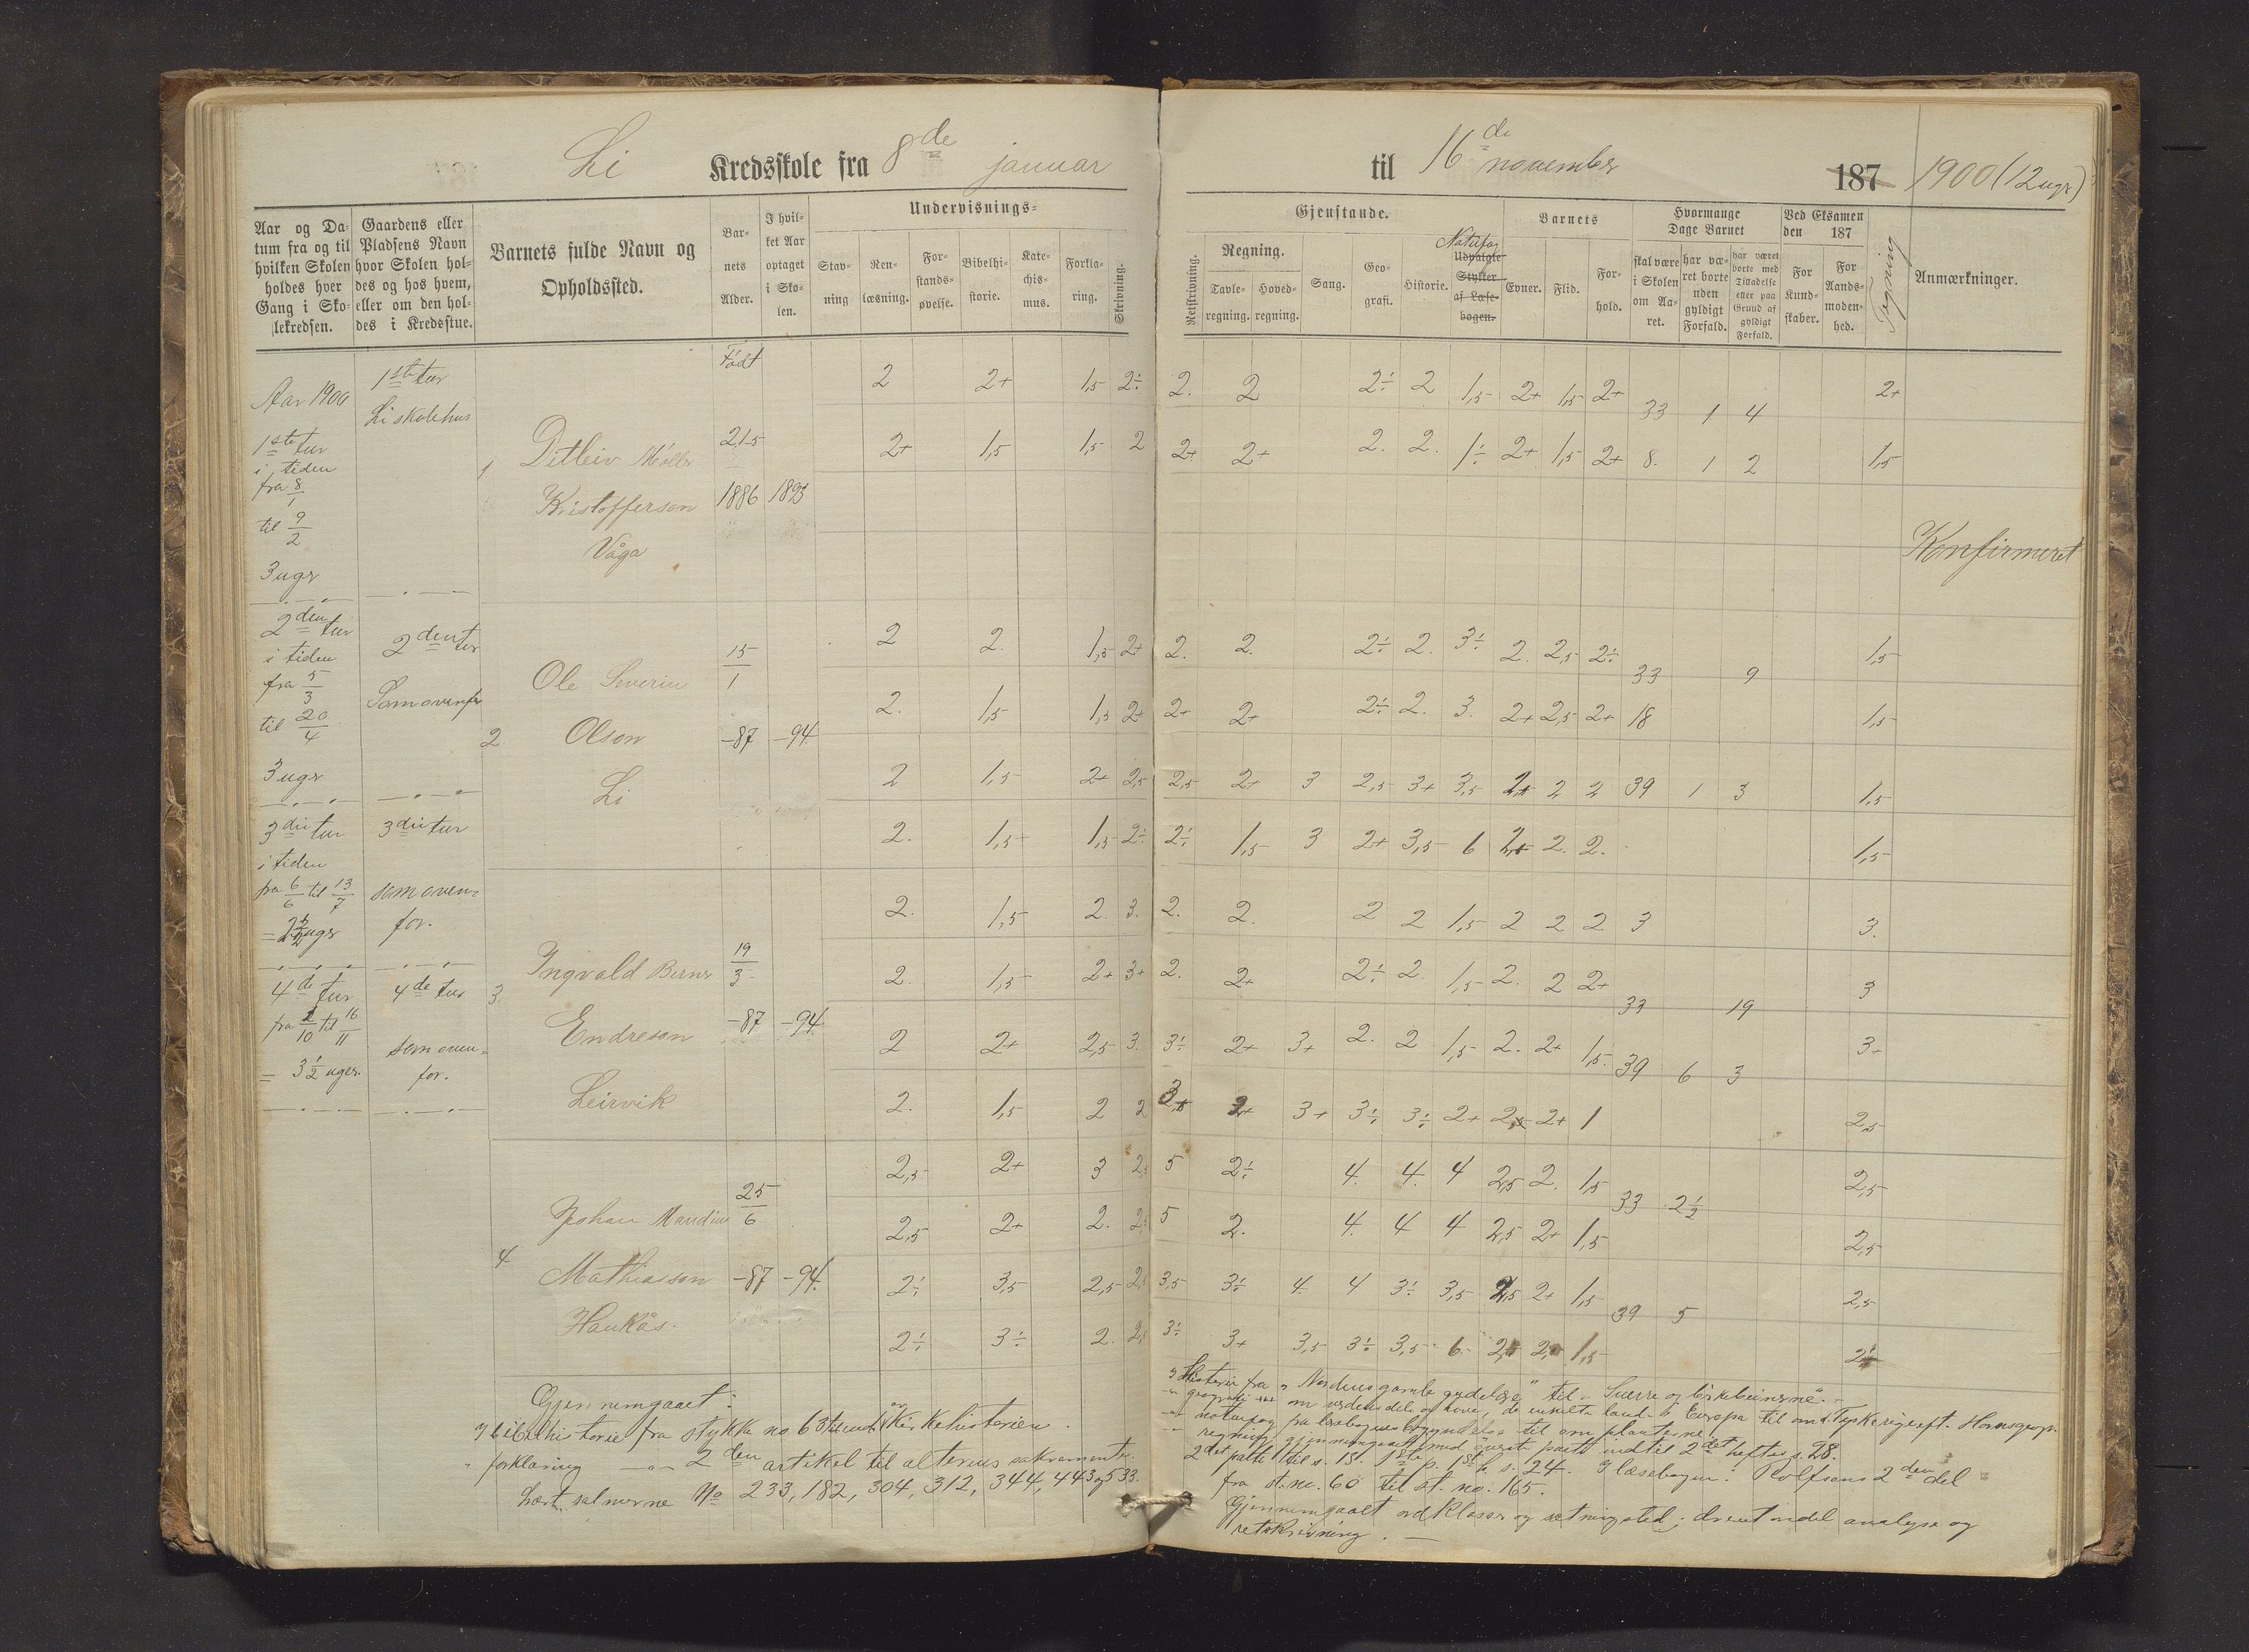 Li Kredsskole fra 8de januar
til 16de november 187 1900 (12 ugr)
Aar og Datum fra og til hvilken Skolen holdes hver Gang i Skolekredsen.
Gaardens eller Pladsens Navn hvor Skolen holdes og hos hvem, eller om den holdes i Kredsstue.
Barnets fulde Navn og Opholdssted.
Barnets Alder.
I hvilket Aar optaget i Skolen.
Undervisnings=
Stavning
Renlæsning.
Forstandsøvelse.
Bibelhistorie.
Katechismus.
Forklaring.
Skrivning.
Gjenstande.
Retskrivning.
Regning.
Tavleregning.
Hovedregning.
Sang.
Geografi.
Historie.
Naturfag
Udvalgte Stykker af Læsebogen.
Barnets
Evner.
Flid.
Forhold.
Hvormange Dage Barnet
skal være i Skolen om Aaret.
har været borte uden gyldigt Forfald.
har været borte med Tilladelse eller paa Grund af gyldigt Forfald.
Ved Eksamen den 187
For Kundskaber.
For Aandsmodenhed.
Tegning
Anmærkninger.
Aar 1900
1ste tur
i tiden
fra 8/1
til 9/2
3 ugr
2den tur
i tiden
fra 5/3
til 20/4
3 ugr
3die tur
i tiden
fra 6/6 til 13/7
ugr
4de tur
fra 2/10 til 16/11
= 3 1/2 uger.
1ste tur
Li skolehus
2den tur
Som ovenfr
3die tur
som oven=
for.
4de tur
som oven=
for.
Født
1 Ditleiv Møller 21-5
Kristofferson 1886 1893
Våga
2 2+ 1,5 2÷ 2. 2 2÷ 2 1,5 2+ 1,5 2+ 33 1 4 2+
2+ 1,5 1,5 2 2+ 2+ 2. 2. 1÷ 2+ 1,5 2+ 8. 1 2 1,5
Konfirmeret
2. Ole Severin 15/1
Olson -87 -94.
Li
2 2. 1,5 2+ 2. 2. 2÷ 2. 3÷ 2. 2,5 2÷ 33 9 1,5
2. 1,5 1,5 2+ 2+ 2+ 2÷ 2. 3. 2+ 2,5 2+ 18 1,5
2 1,5 2+ 2,5 2,5 2+ 3 2,5 3+ 3,5 2+ 2 2 39 1 3 1,5
2. 1,5 1,5 2÷ 2÷ 1,5 3 2+ 3,5 6 2+ 2. 2. 1,5
3. Ingvald Berner 19/3
Endreson -87 -94.
Leirvik
2. 1,5 2. 3. 2. 2. 2 2 1,5 2 2 2 3 3.
2. 1,5 2+ 3+ 2. 2+ 2÷ 2. 1,5 2. 2 2+ 33 19 3
2 2+ 2,5 3. 3÷ 2+ 3+ 2. 2 1,5 2. 2+ 1,5 39 6 3 3+
2. 1,5 2 2 2+ 3+ 3÷ 3÷ 2+ 2+ 1 2,5
4. Johan Mandius 25/6
Mathiasson -87 -94.
Haukås.
2,5 2+ 3 5 2÷ 4. 4. 4 2,5 2. 1,5 33 2 1/2 2,5
2,5 2+ 2. 5 2. 4. 4 4 2,5 2+ 1,5 2,5
2÷ 3,5 2,5 3,5 3÷ 4. 4 3÷ 3,5 2,5 2+ 1,5 39 5 2,5
2÷ 3÷ 2. 3÷ 3+ 3,5 3÷ 3,5 6 1,5
Gjennemgaaet:
I bibelhistorie fra stykke no 63 til og Kirkehistorien.
" forklaring —"— 2den artikel til alterens sakramente.
Lært salmerne No 233, 182, 304, 312, 344, 443 og 533.
I Historie fra "Nordens gamle gudelære" til "Sverre og birkebeinerne".
—" geografi om verdensdele og have, de enkelte land i Europa til om d. Tyske rige
—" naturfag fra læsebogens begyndelse til om planterne.
regning gjennemgaaet med øverste parti indtil 2det heftes s. 28.
2det parti til s. 13. 1ste p. 1st h. s. 24. I læsebogen: Rolfsens 2den del
fra st. no. 60 til st. no. 165.
Gjennemgaaet ordklasser og setningsled; drevet endel analyse og
retskrivning. —